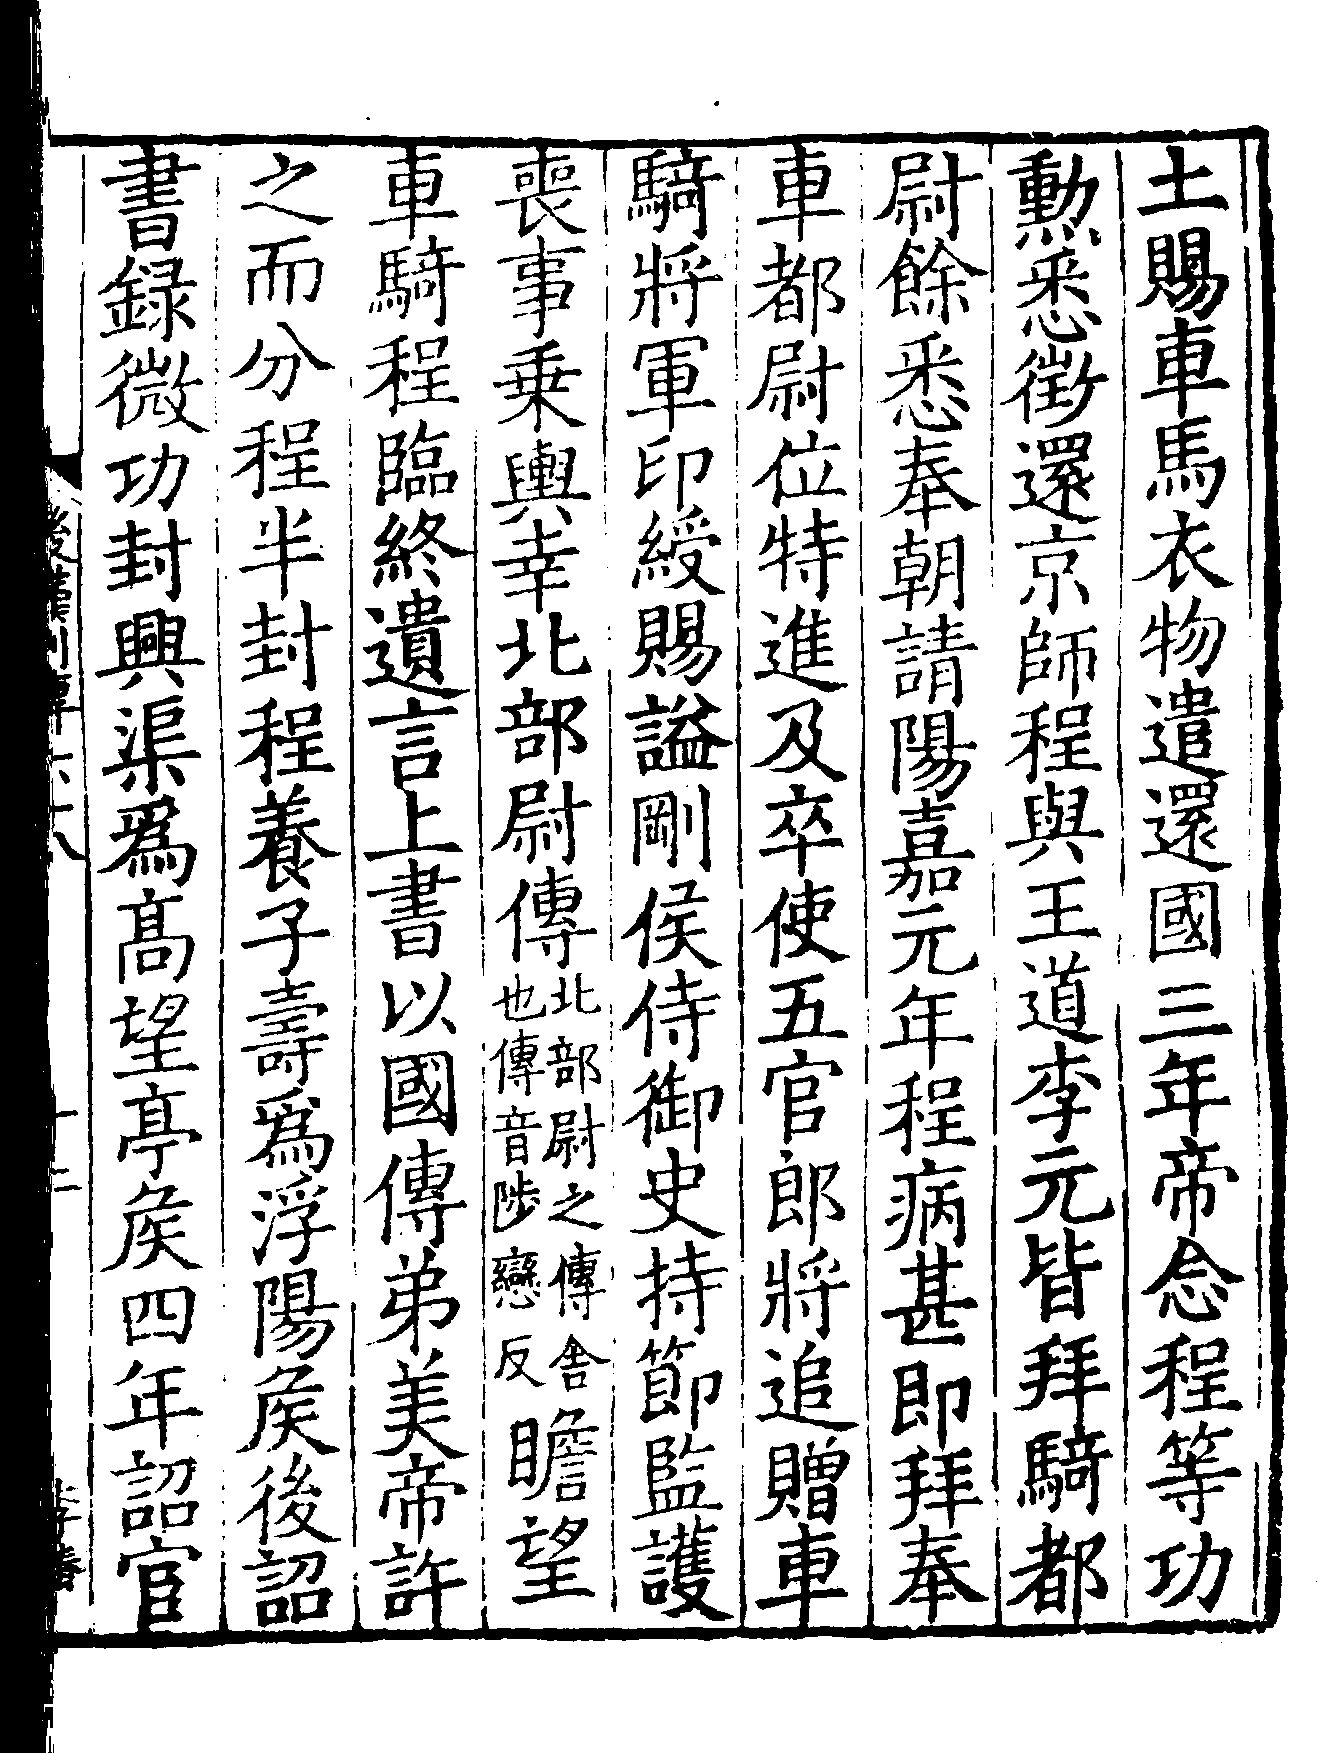 土賜車馬衣物遣還國三年帝念程等功
勲悉徵還京師程與王道李元皆拜騎都
尉餘悉奉朝請陽嘉元年程病甚即拜奉
車都尉位特進及卒使五官郎將追贈車
騎將軍印綬賜謚剛侯侍御史持節監護
喪事乗輿幸北部尉傳北部尉之傳舍也傳音陟戀反瞻望
車騎程臨終遺言上書以國傳弟美帝許
之而分程半封程養子壽爲浮陽侯後詔
書録微功封興渠爲髙望亭侯四年詔宦
後漢列傳六十八
十二